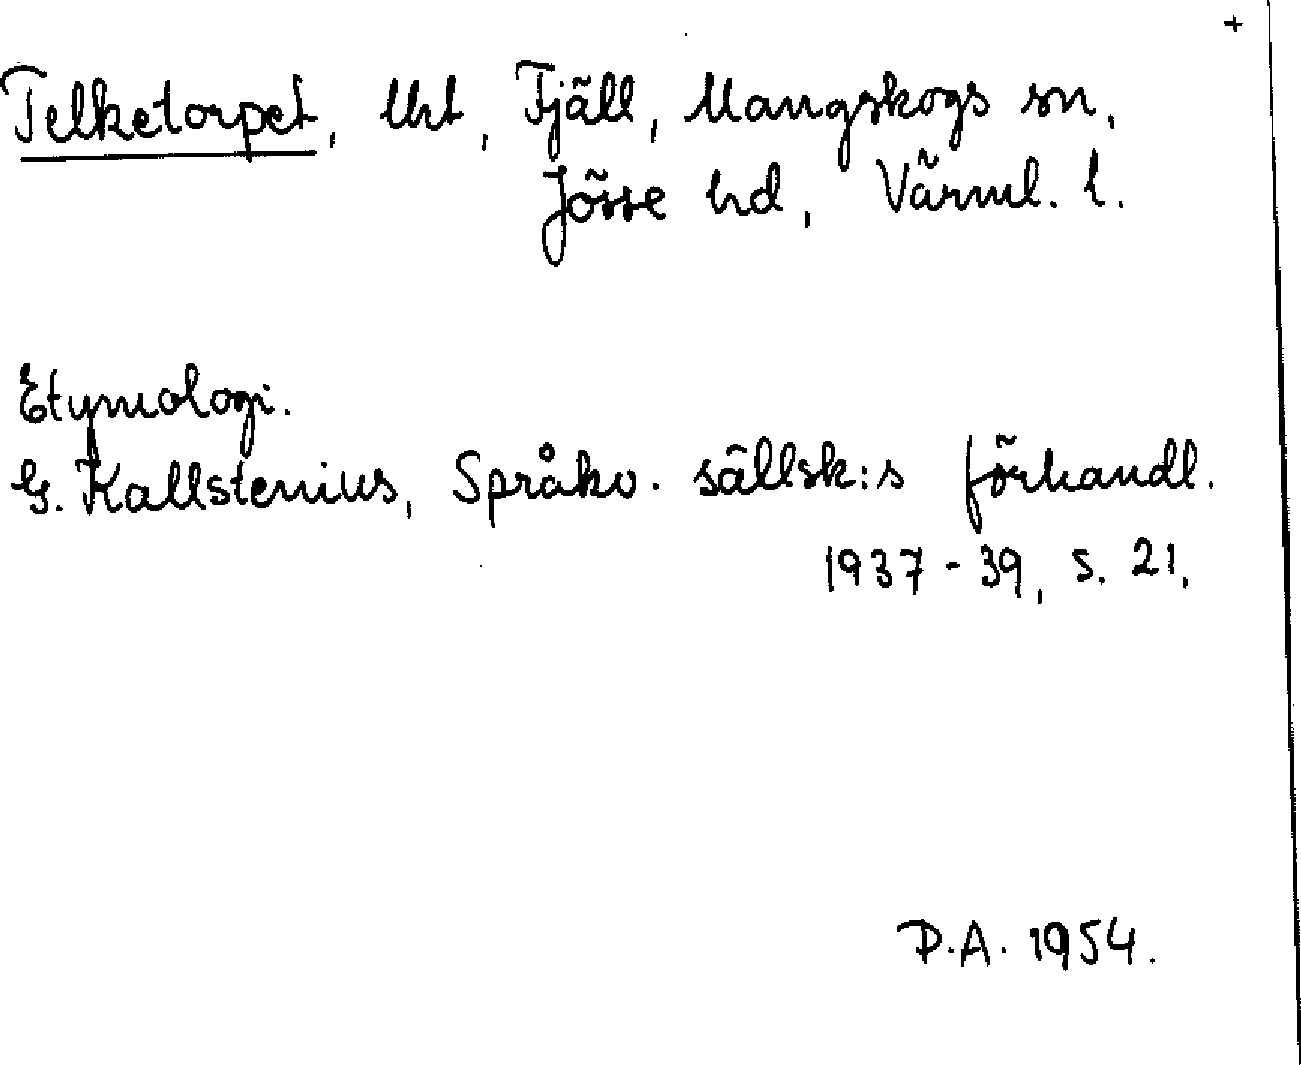 +
Telketorpet, lht, Fjäll, Mangskogs sn,
Jösse hd, Värml. l.
Etymologi.
G. Kallstenius, Språkv. sällsk:s förhandl.
1937-39, s. 21.
P.A. 1954.